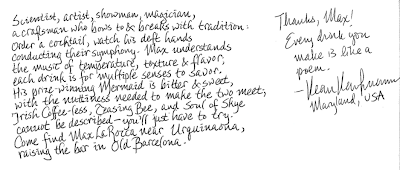 Scientist, artist, showman, magician,
a craftsman who bows to & breaks with tradition:
Order a cocktail, watch his deft hands
conducting their symphony. Max understands
the music of temperature, texture & flavor;
each drink is for multiple senses to savor.
His prize-winning Mermaid is bitter & sweet,
with the nuttiness needed to make the two meet;
Irish Coffee-less, Teasing Bee, and Soul of Skye
cannot be described—you'll just have to try.
Come find Max La Rocca near Urquinaona,
raising the bar in Old Barcelona.
Thanks, Max!
Every drink you
make is like a
poem.
—
Maryland, USA